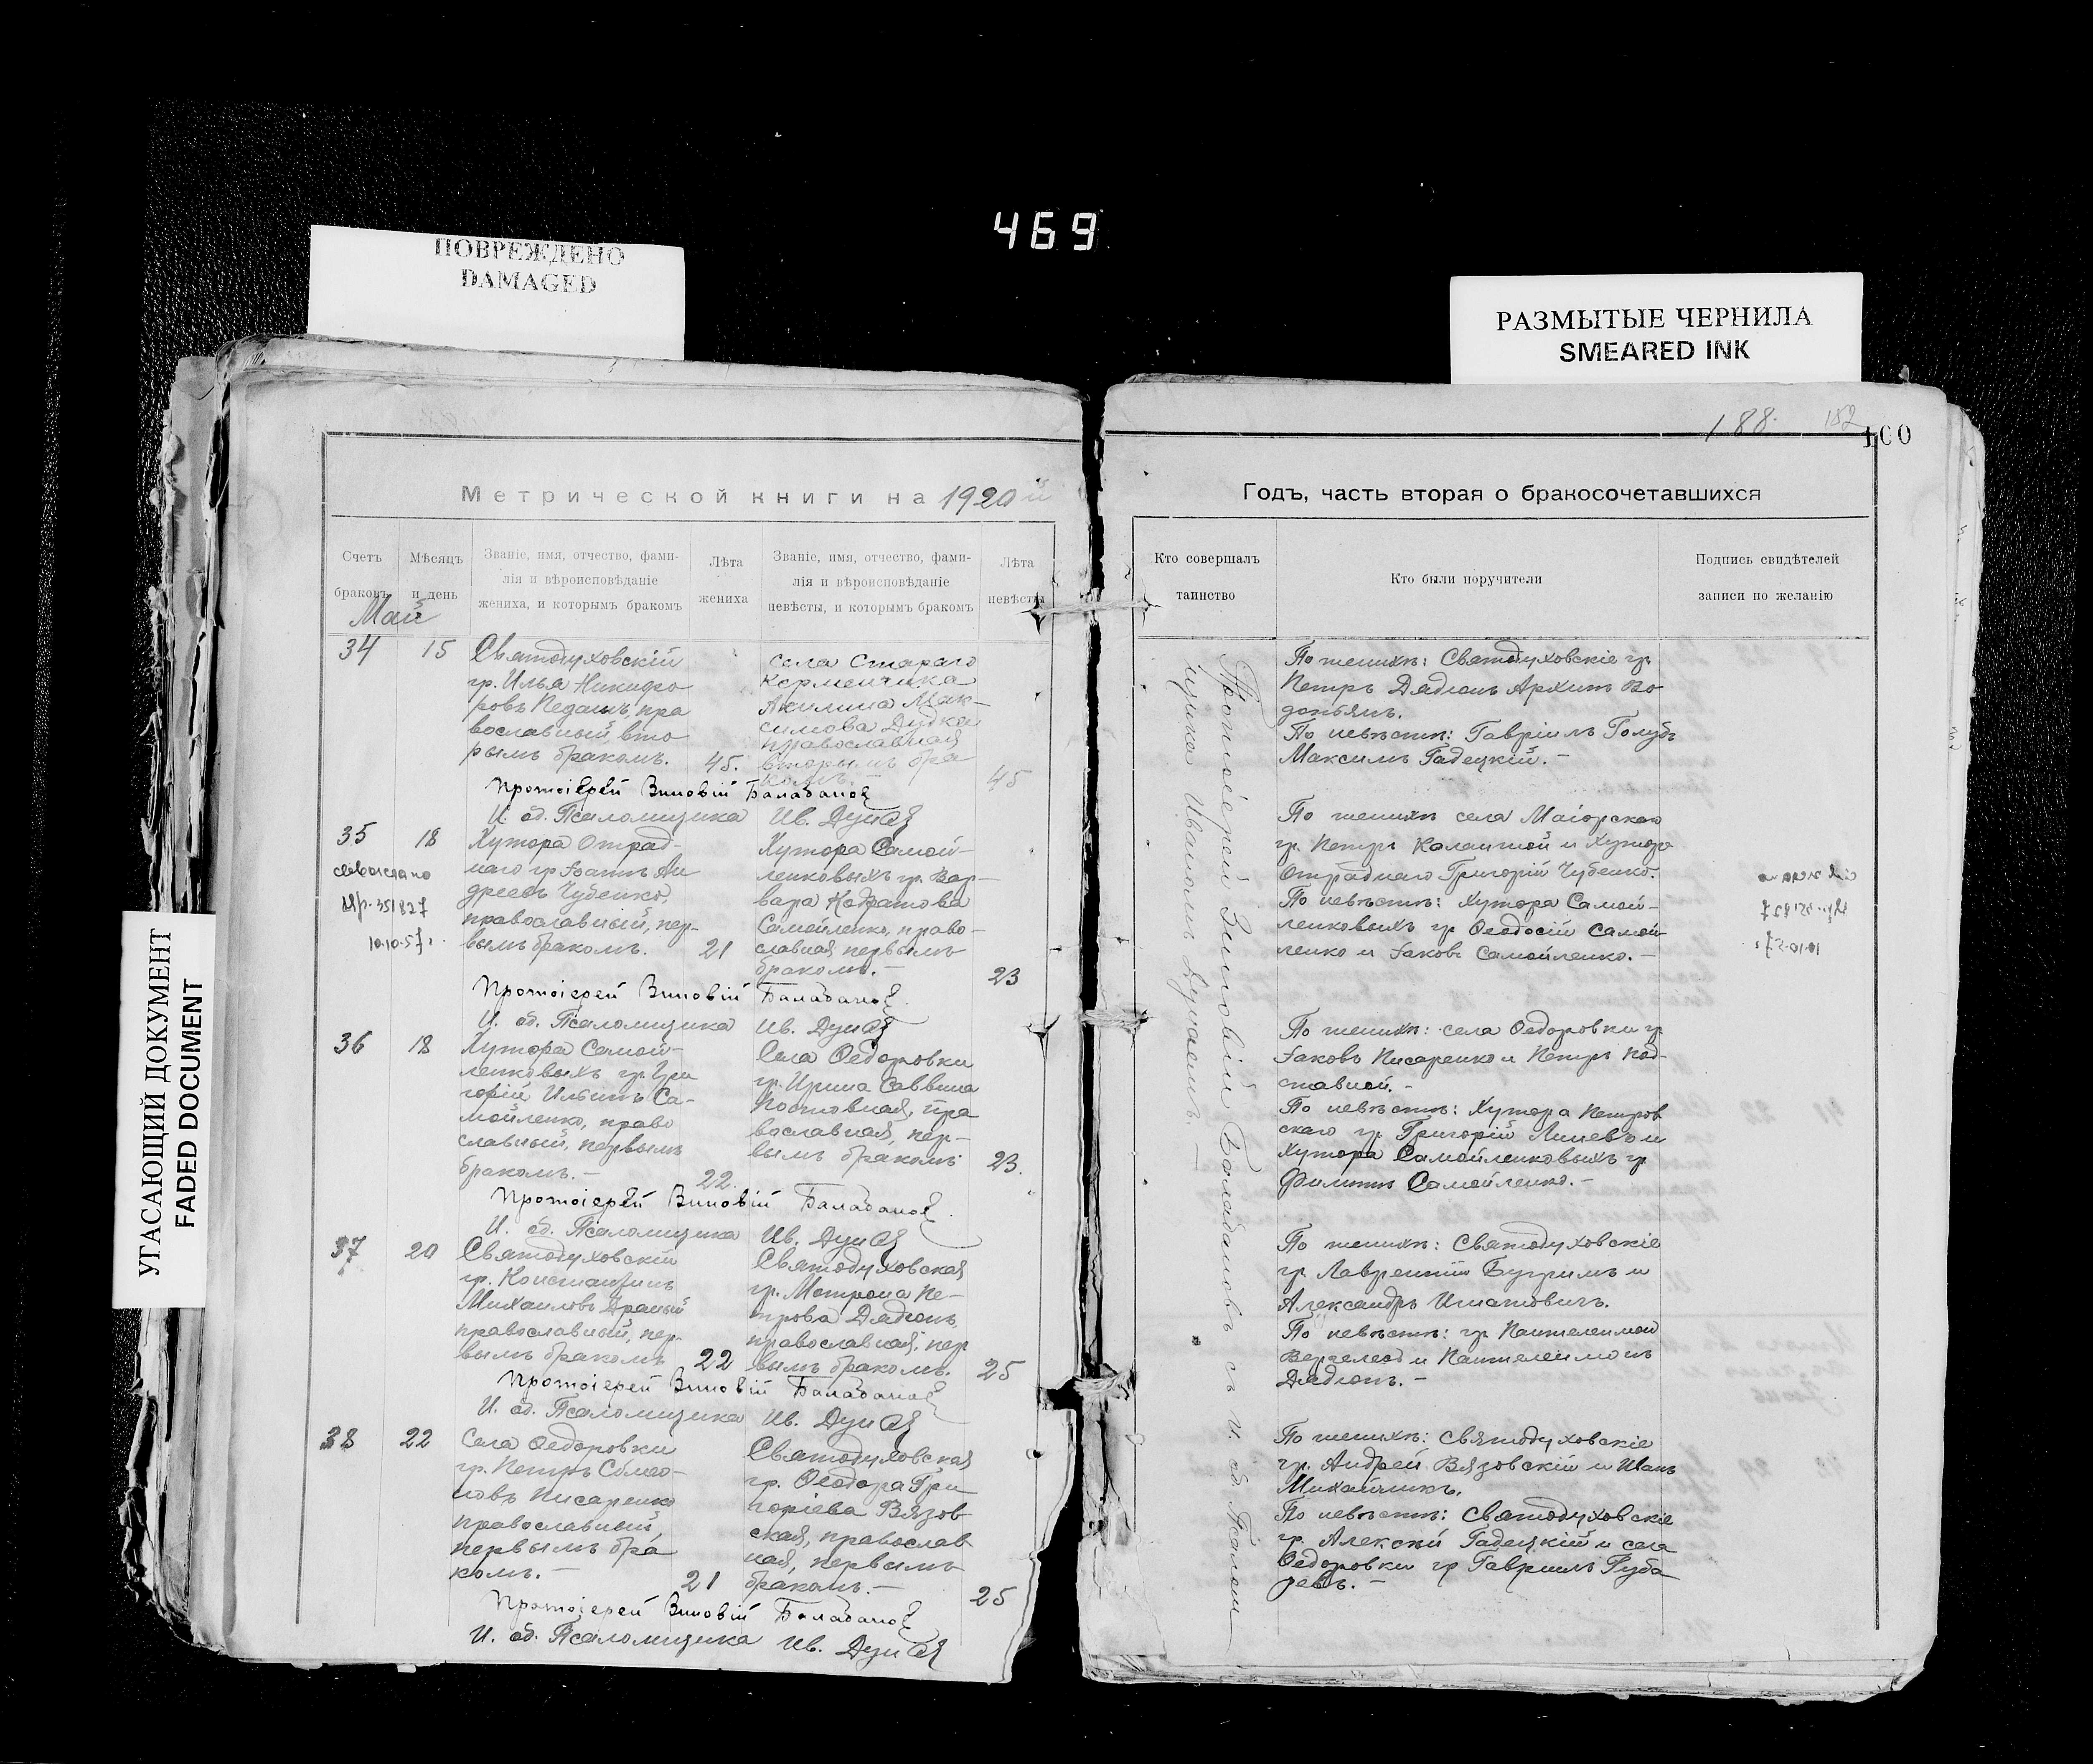 469
ПОВРЕЖДЕНО
DAMAGED
РАЗМЫТЫЕ ЧЕРНИЛА
SMEARED INK
УГАСАЮЩИЙ ДОКУМЕНТ
FADED DOCUMENT
Метрической книги на 1920й
Счетъ браковъ
Мѣсяцъ и день
Званіе, имя, отчество, фами-
лія и вѣроисповѣданіе
жениха, и которымъ бракомъ
Лѣта
жениха
Званіе, имя, отчество, фами-
лія и вѣроисповѣданіе
невѣсты, и которымъ бракомъ
Лѣта
невѣсты
Май
34
15
Святодуховскій
гр. Илья Никифо
ровъ Педанъ, пра
вославный, вто
рымъ бракомъ.
45.
села Стараго
Керменчика
Акилина Мак-
симова Дудка
православная
вторымъ бра
комъ.
45
Протоіерей Зиновій Балабановъ
И. об. Псаломщика Ив. Дунаев
35
18
10.10.57г.
Хутора Отрад-
наго гр. Іоаннъ Ан
дреевъ Чубенко,
православный, пер-
вымъ бракомъ.
21
Хутора Самой-
ленковыхъ гр. Вар-
вара Кодратова
Самойленко, право-
славная первымъ
бракомъ.-
23
Протоіерей Зиновій Балабановъ
И. об. Псаломщика Ив. Дунаев
36
18
Хутора Самой-
ленковыхъ гр. Гри
горій Ильинъ Са-
мойленко, право
славный, первымъ
бракомъ.-
22.
Села Ѳедоровки
гр. Ирина Саввина
пра
вославная, пер-
вымъ бракомъ
23.
Протоіерей Зиновій Балабановъ
И. об. Псаломщика Ив. Дунаев
37
20
Святодуховскій
гр. Константинъ
Михаиловъ Драный
православный, пер-
вымъ бракомъ
22
Святодуховская
гр. Матрона Пе-
трова Дядюнъ,
православная, пер
вымъ бракомъ.
25
Протоіерей Зиновій Балабановъ
И. об. Псаломщика Ив. Дунаев
38
22
Села Ѳедоровки
гр. Петръ Симео-
новъ Писаренко
православный,
первымъ бра
комъ.-
21
Святодуховская
гр. Ѳеодора Гри
горіева Вязов
ская, православ
ная, первымъ
бракомъ.-
25
Протоіерей Зиновій Балабановъ
И. об. Псаломщика Ив. Дунаев
188.
182
100
Годъ, часть вторая о бракосочетавшихся
Кто совершалъ
таинство
Кто были поручители
Подпись свидѣтелей
записи по желанію
Протоіерей Зиновій Балабановъ съ и. об. Псалом
щика Иваномъ Дунаевымъ.-
По женихѣ: Святодуховскіе гр.
Петръ Дядюнъ Архипъ Во
допьянъ.
По невѣстѣ: Гавріилъ Голубъ
Максимъ Гадецкій.-
По женихѣ села Маіорскаго
гр. Петръ и Хутора
Отраднаго Григорій Чубенко.
По невѣстѣ: Хутора Самой-
ленковыхъ гр. Ѳеодосій Самой
ленко и Іаковъ Самойленко.-
По женихѣ: села Ѳедоровки гр.
Іаковъ Писаренко и Петръ Под-
ставной.-
По невѣстѣ: Хутора Петров
скаго гр. Григорій и
Хутора Самойленковыхъ гр.
Филиппъ Самойленко.-
По женихѣ: Святодуховскіе
гр. Лаврентій Бугримъ и
Александръ Игнатовичъ.
По невѣстѣ: гр. Пантелеимон
и Пантелеимонъ
Дядюнъ.-
По женихѣ: Святодуховскіе
гр. Андрей Вязовскій и Иванъ
Михайликъ.
По невѣстѣ: Святодуховскіе
гр. Алексѣй Гадецкій и села
Ѳедоровки гр Гавріилъ Губа
ревъ.-